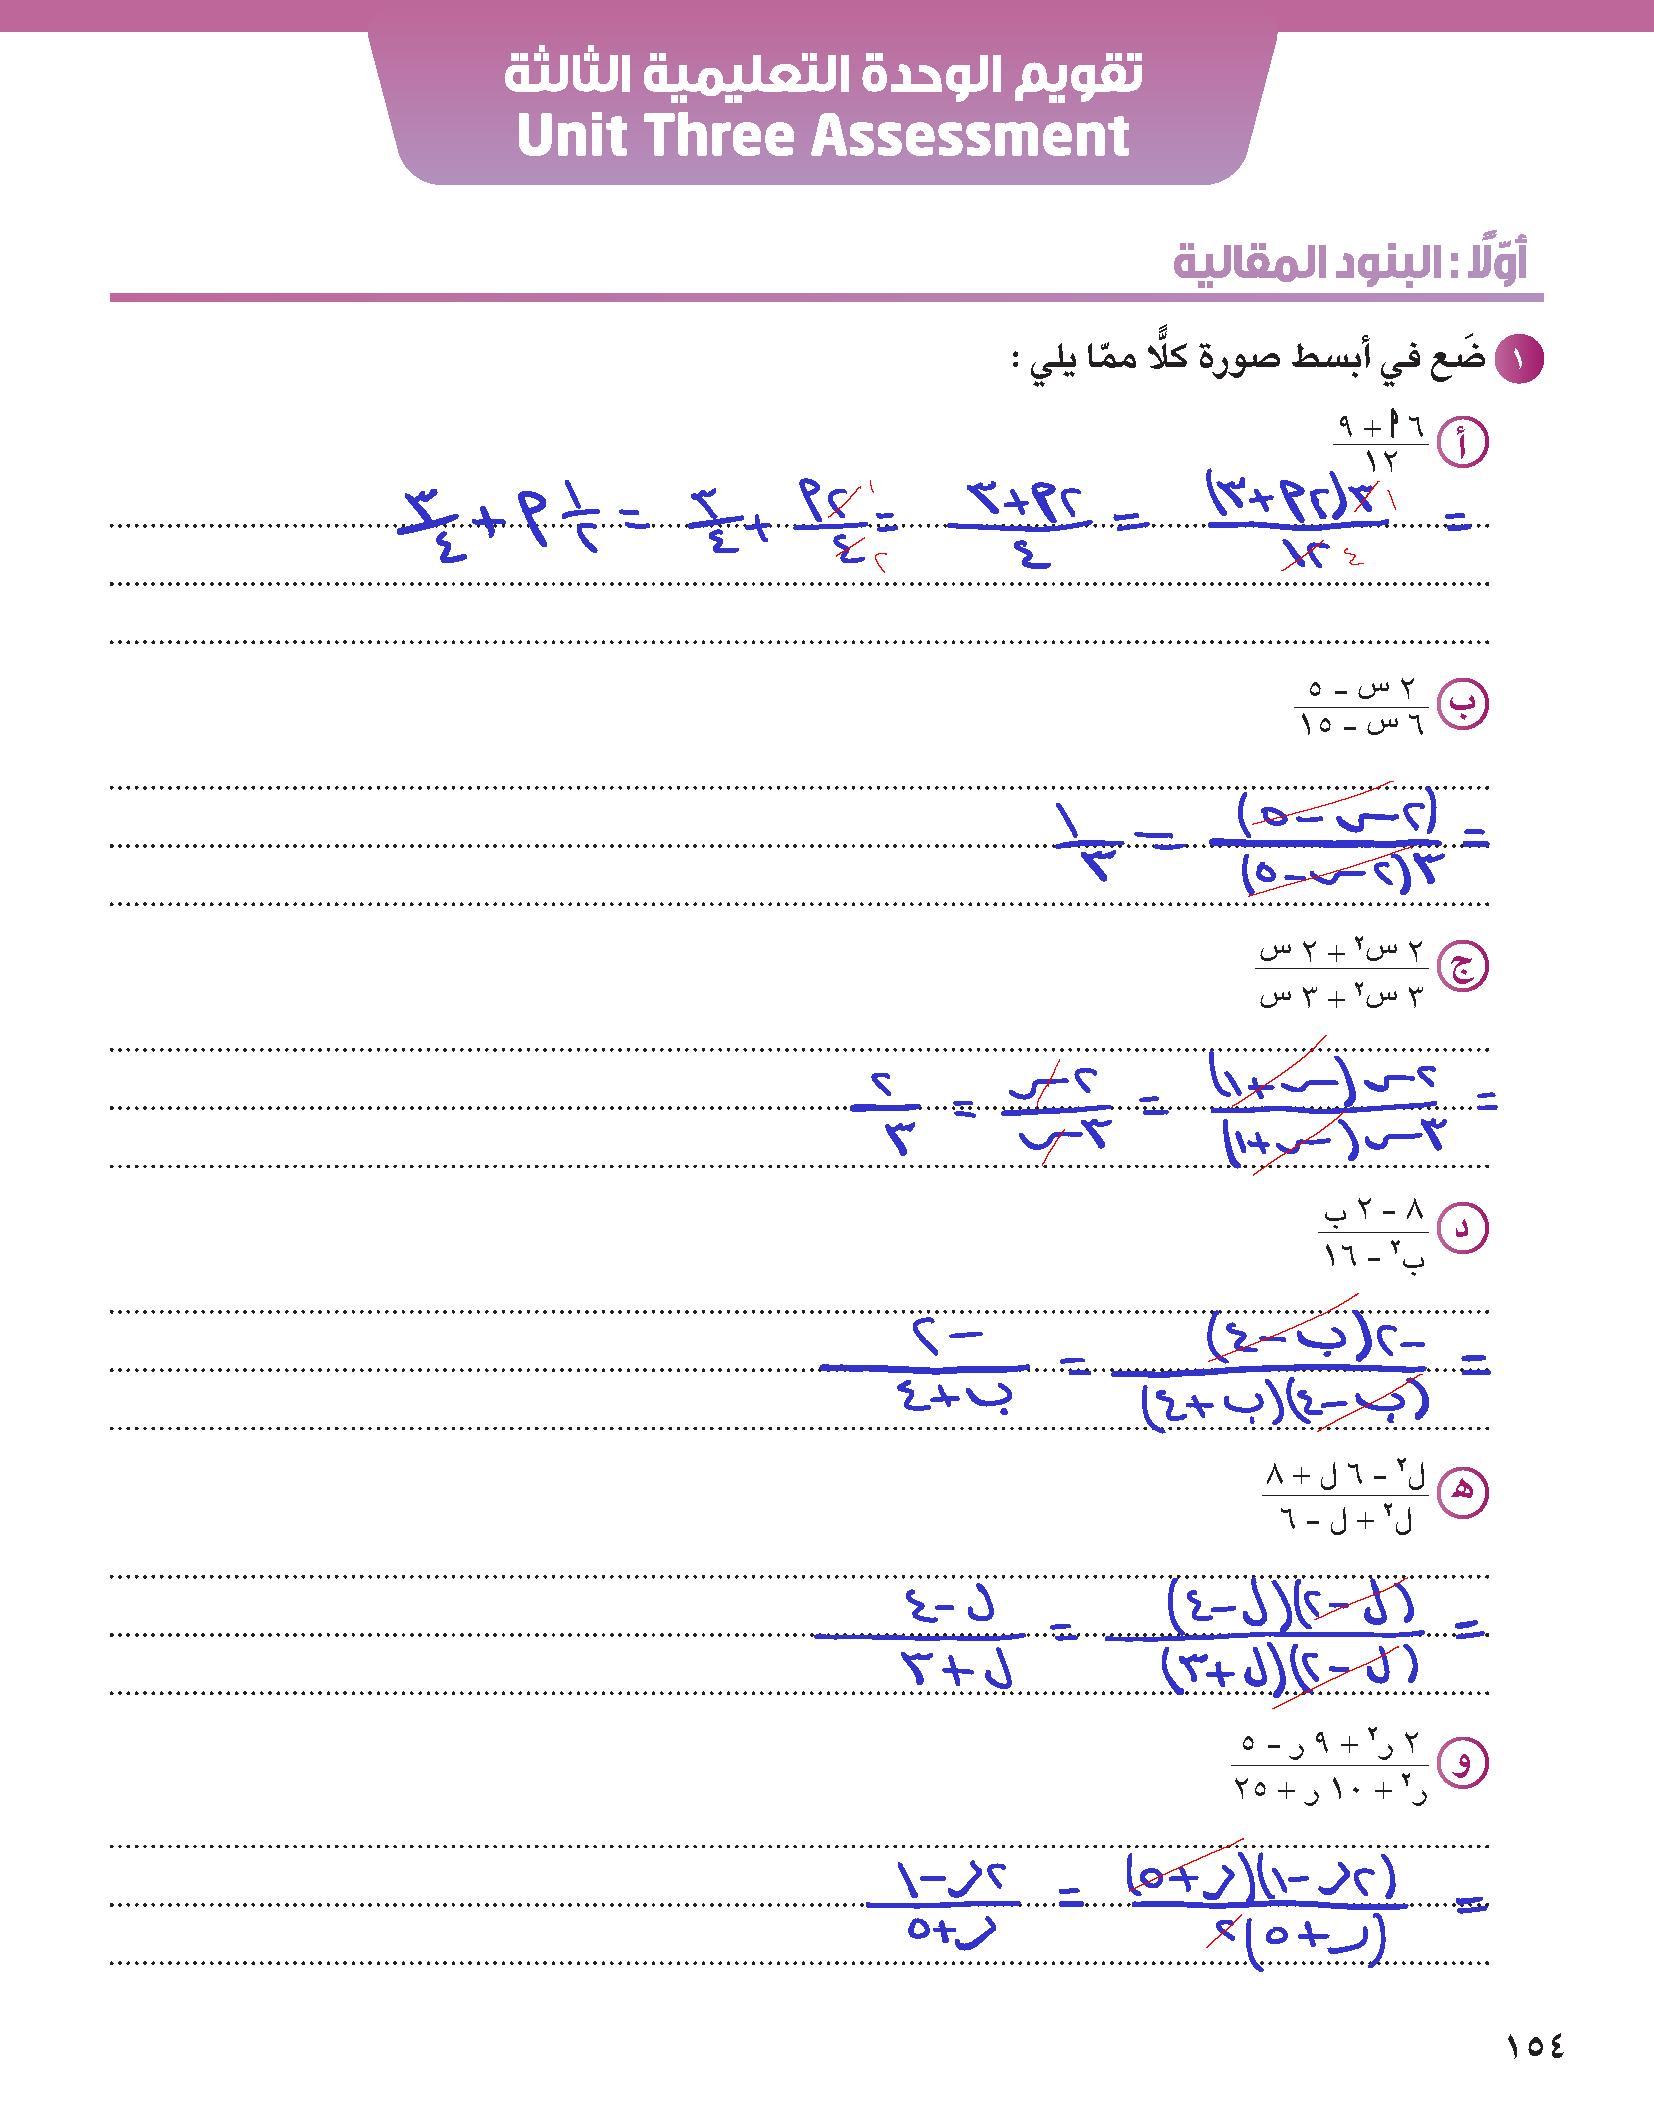 تقويم الوحدة التعليمية الثالثة
Unit Three Assessment
أوّلًا : البنود المقالية
١ ضَع في أبسط صورة كلًّا ممّا يلي :
أ (٦ م + ٩) / ١٢
= ٣(٢م+٣) / ١٢ = (٢م+٣) / ٤ = ٢م / ٤ + ٣ / ٤ = ١/٢ م + ٣/٤
١ ٤ ١ ٢
ب (٢ س − ٥) / (٦ س − ١٥)
= (٢س−٥) / ٣(٢س−٥) = ١ / ٣
ج (٢ س² + ٢ س) / (٣ س² + ٣ س)
= ٢س(س+١) / ٣س(س+١) = ٢س / ٣س = ٢ / ٣
د (٨ − ٢ ب) / (ب² − ١٦)
= −٢(ب−٤) / (ب−٤)(ب+٤) = −٢ / (ب+٤)
ه (ل² − ٦ ل + ٨) / (ل² + ل − ٦)
= (ل−٢)(ل−٤) / (ل−٢)(ل+٣) = (ل−٤) / (ل+٣)
و (٢ ر² + ٩ ر − ٥) / (ر² + ١٠ ر + ٢٥)
= (٢ر−١)(ر+٥) / (ر+٥)² = (٢ر−١) / (ر+٥)
١٥٤